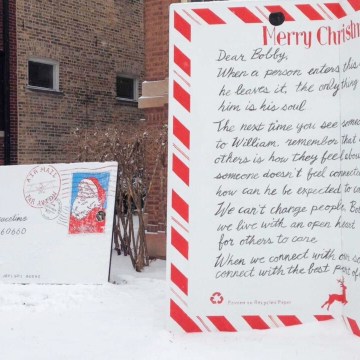 AIR MAIL
PAR AVION
60660
Merry Christm
Dear Bobby,
When a person enters this
he leaves it, the only thing
him is his soul
The next time you see some
to William, remember that
others is how they feel about
someone doesn't feel connect
how can he be expected to
We can't change people, Bo
we live with an open heart
for others to care
When we connect with our so
connect with the best part of
Printed on Recycled Paper